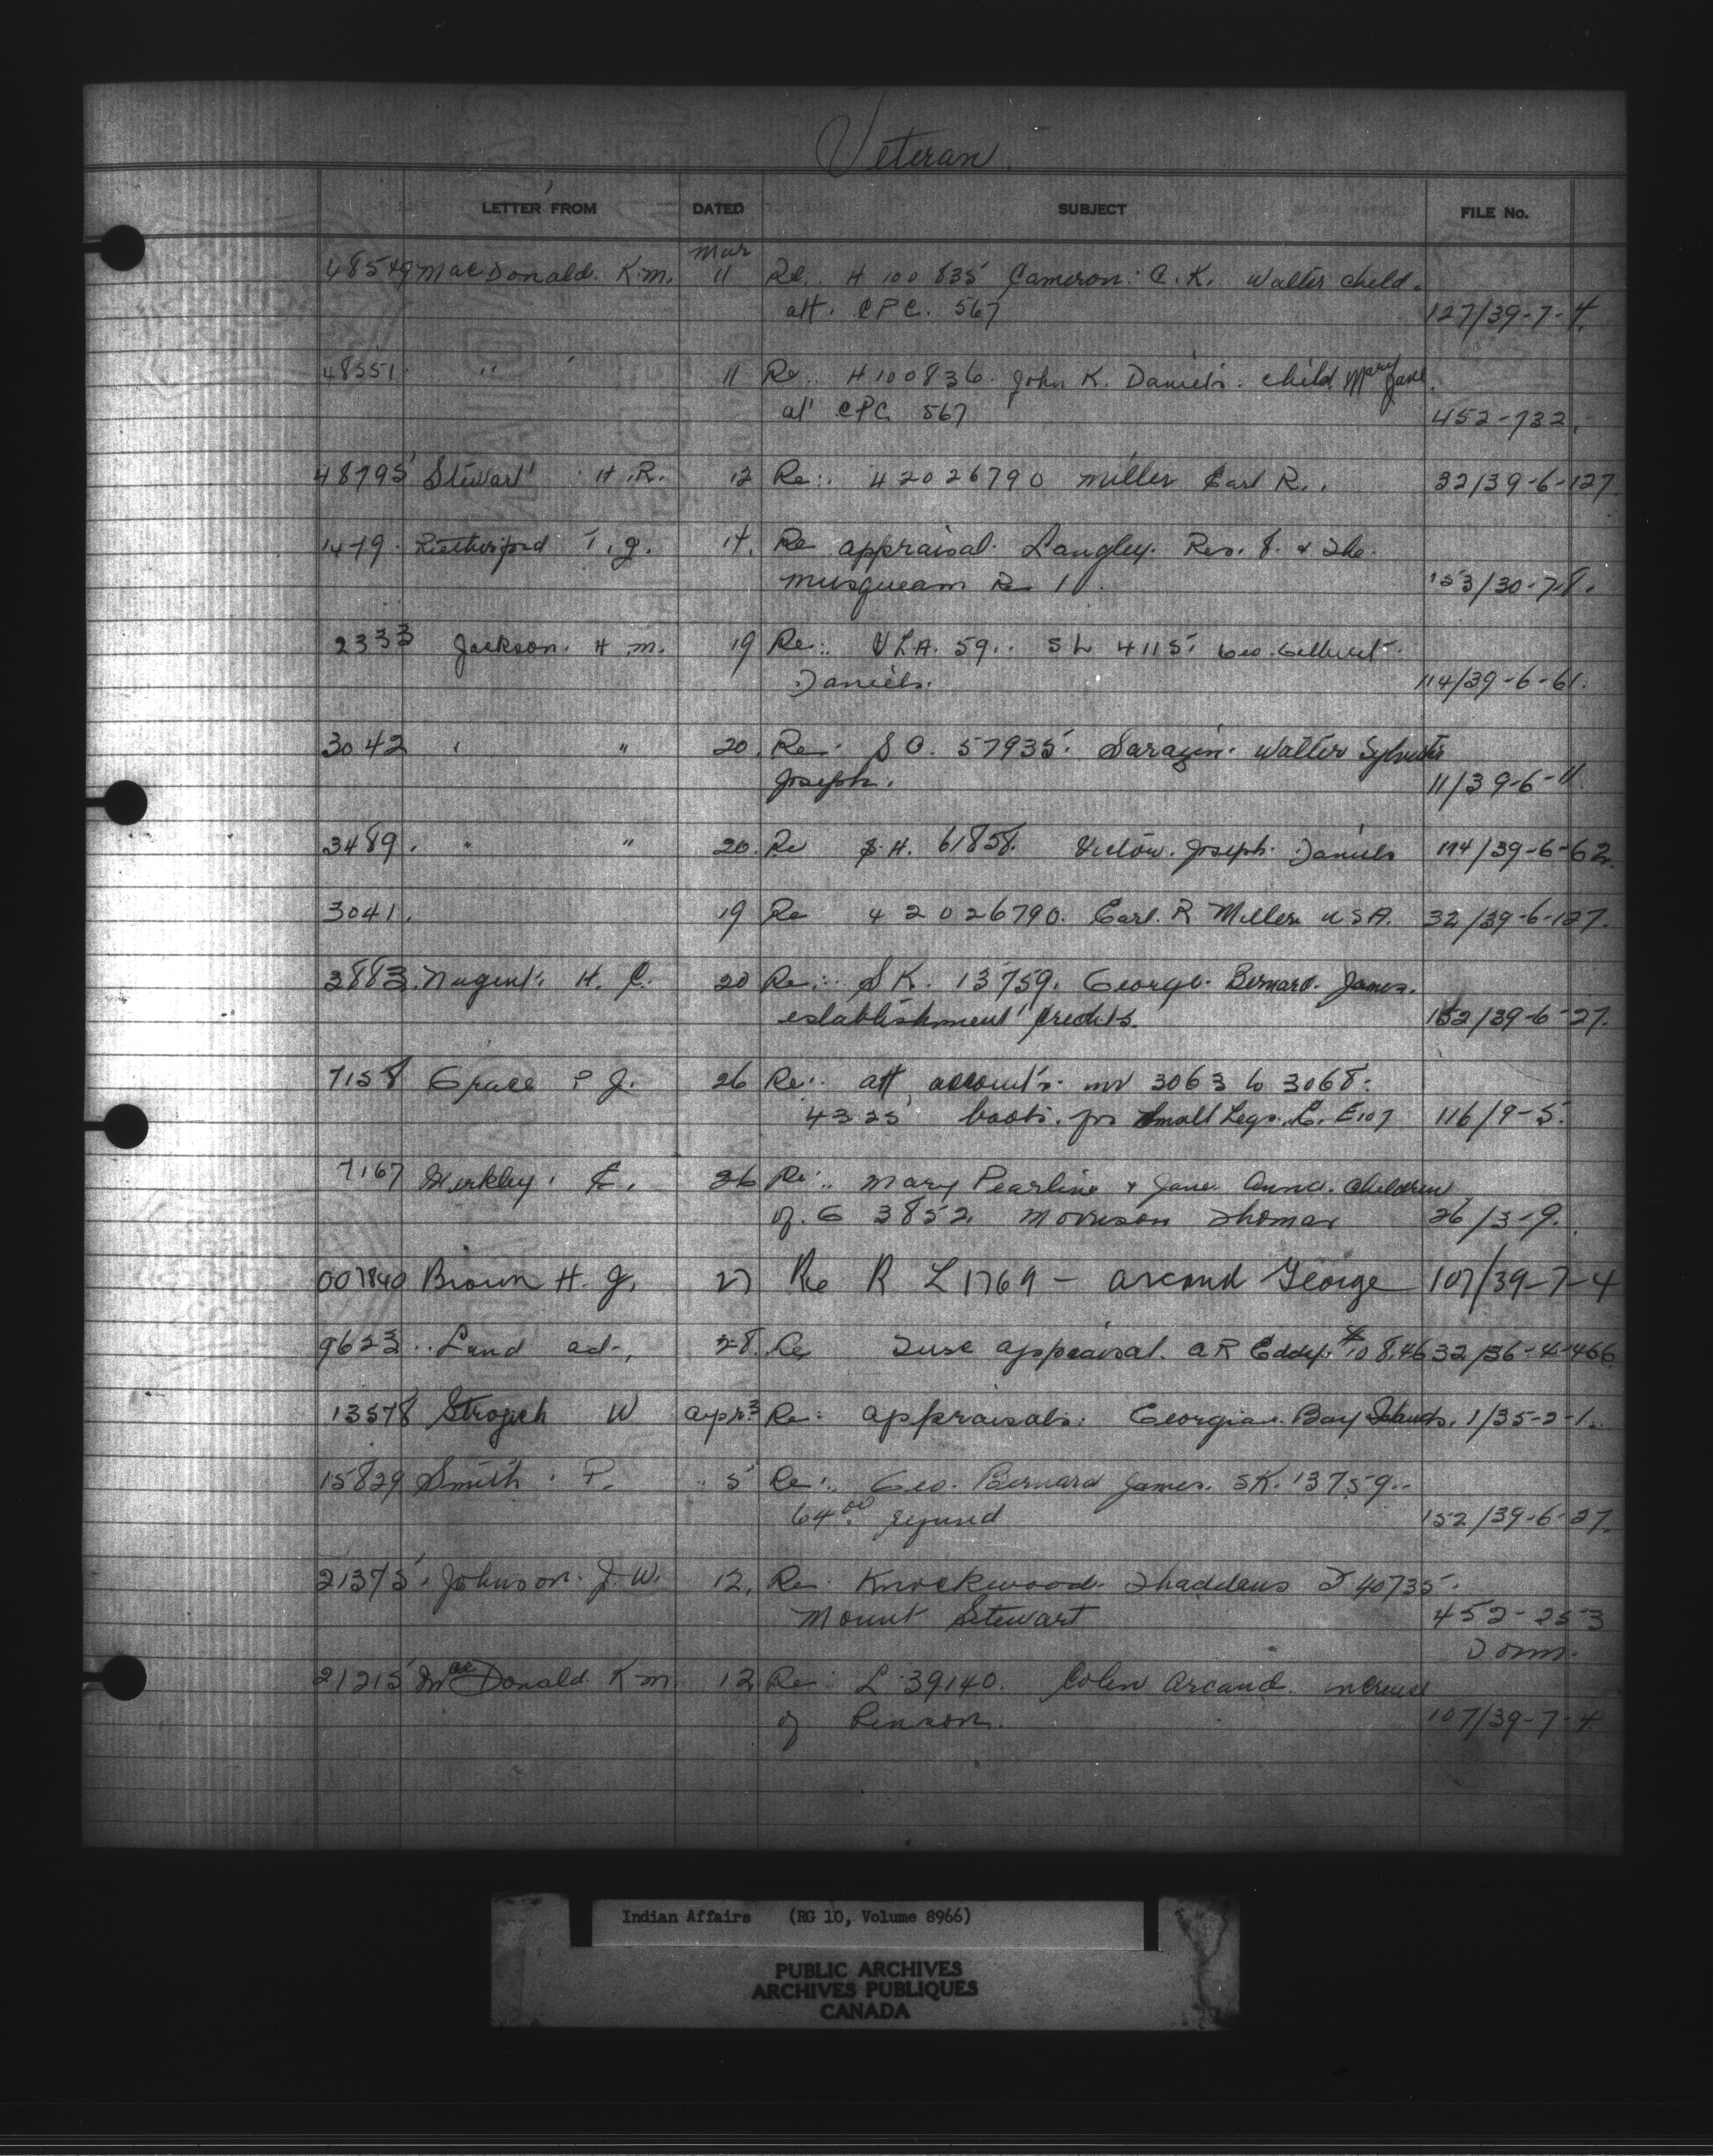 Veteran
LETTER FROM DATED SUBJECT FILE No.
Mar
48549 MacDonald. K.M. 11 Re. H 100 835 Cameron. C.K. Walter child.
att. CPC. 567 127/39-7-4.
48551. " 11 Re. H 100836. John K. Daniels. child Mary Jane.
att CPC 567 452-732.
48795 Stewart H.R. 12 Re. 42026790 Miller Earl R. 32/39-6-127.
1479. T.J. 14. Re appraisal. Langley. Res. 8. & The.
Musqueam Re 1. 153/30-7-8.
2333 Jackson. H.M. 19 Re: VLA. 59.. SL 4115. Geo.
Daniels. 114/39-6-61.
3042 " " 20. Re. S C. 57935. Sarazin. Walter Sylvester
Joseph. 11/39-6-11.
3489. " " 20. Re H. 61858. Victor. Joseph. Daniels 114/39-6-62.
3041. 19 Re 42026790. Earl. R Miller USA. 32/39-6-127.
3883. Nugent. H. C. 20 Re: SK. 13759. George. Bernard. James.
establishment credits. 152/39-6-27.
7158 Grace P J. 26 Re: att accounts. 3063 to 3068.
43.25 boots. for Small Legs. E107 116/9-5.
7167 E. 26 Re: Mary Pearline & Jane Anna. children
of. G 3852. Morrison Thomas 26/3-9.
007840 Brown H. J. 27 Re R L1769 - Arcand George 107/39-7-4
9623 Land ad., 28. Re appraisal. A R Eddy. $108.46 32/36-4-466.
13578 W Apr. 3 Re: appraisals. Georgian Bay Islands. 1/35-2-1.
15829 Smith. P. " 5 Re: Geo. Bernard James. SK. 13759..
64.00 refund 152/39-6-27.
21375. Johnson. J. W. 12. Re. Knockwood. Thaddeus 40735.
Mount Stewart 452-253
21215 MacDonald K M. 12 Re: L 39140. Colin Arcand. increase
of Pension. 107/39-7-4.
Indian Affairs (RG 10, Volume 8966)
PUBLIC ARCHIVES
ARCHIVES PUBLIQUES
CANADA